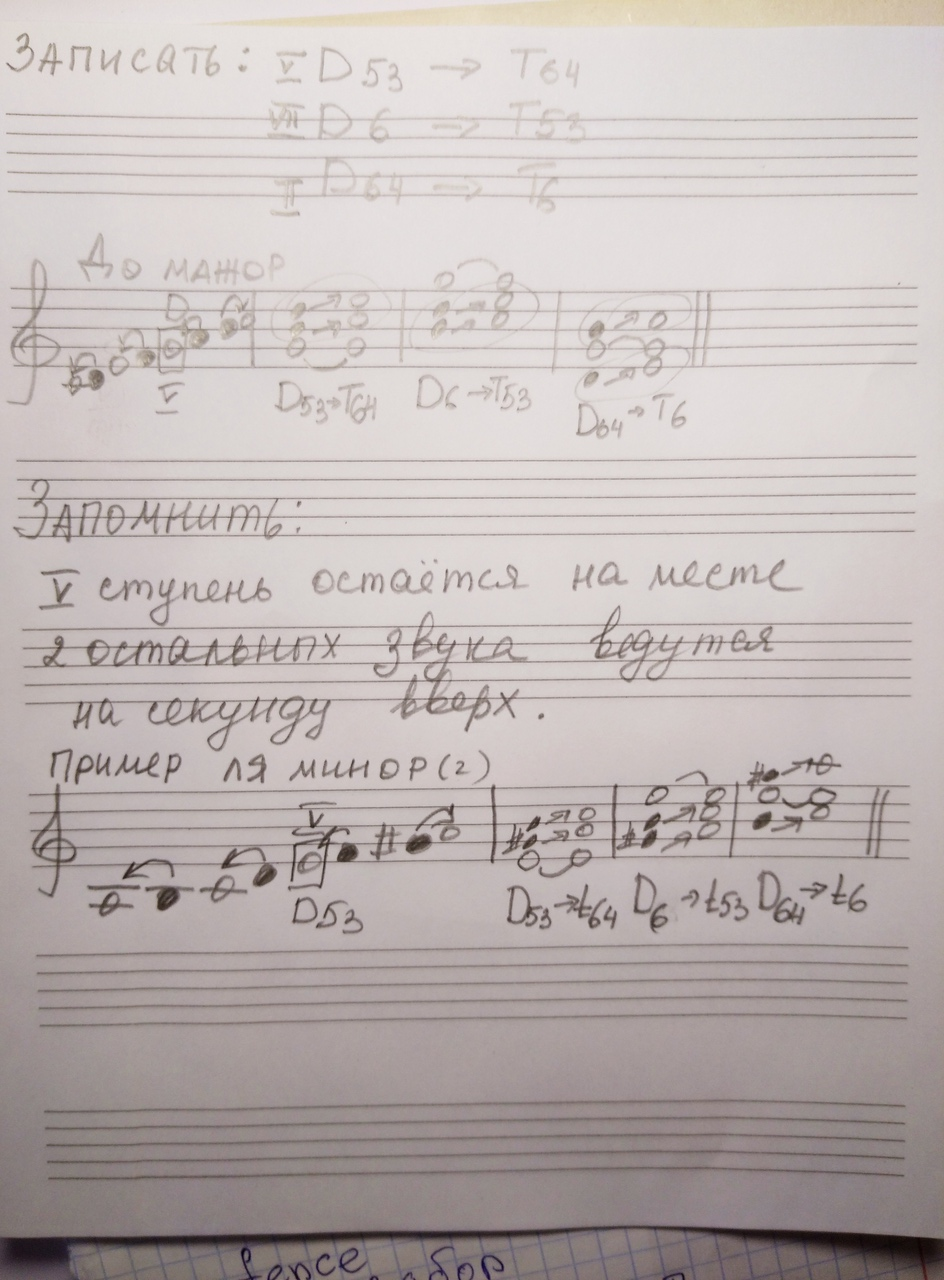 Записать: V D53 → T64
VII D6 → T53
II D64 → T6
До мажор
D
V
D53→T64 D6→T53 D64→T6
Запомнить:
V ступень остаётся на месте
2 остальных звука ведутся
на секунду вверх.
Пример ля минор (г)
V
D53
D53→t64 D6→t53 D64→t6
fence
забор